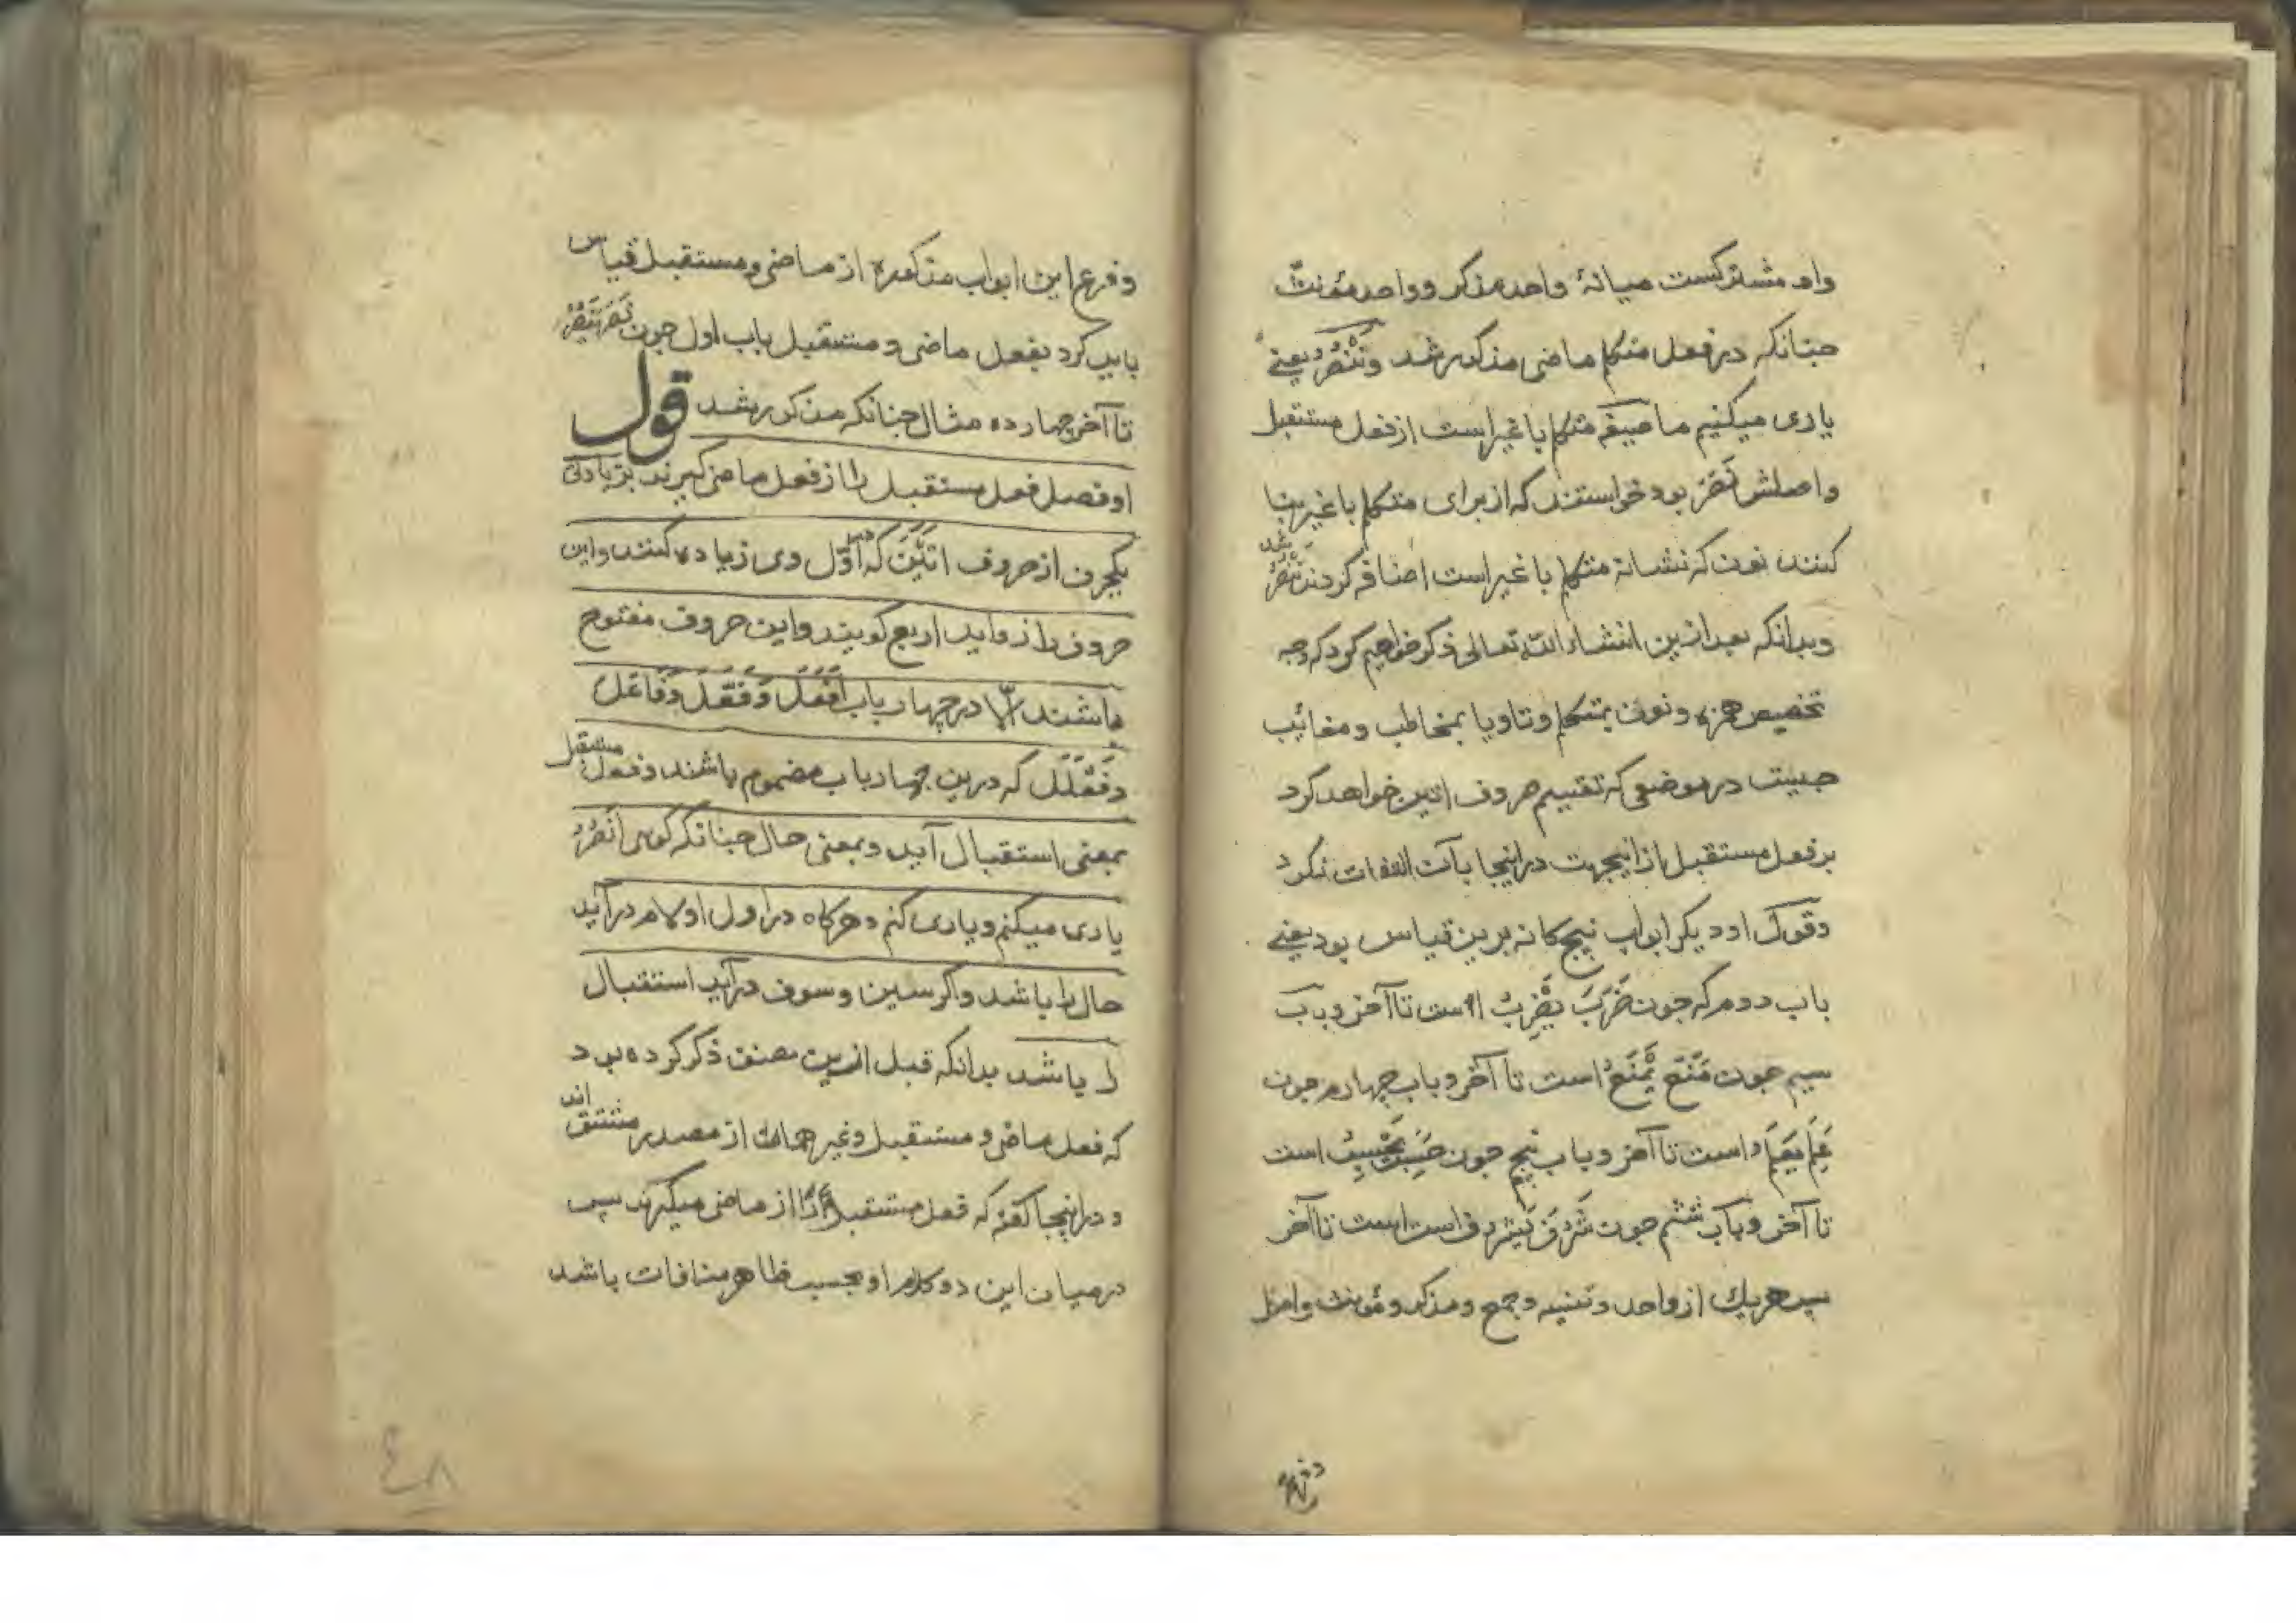 واو مشترکست میانهٔ واحد مذکر و واحد مؤنث
جنانکه در فعل متکلم ماضی مذکور شد و نَنْصُرُ یعنی
یاری میکنیم ما صیغهٔ متکلم با غیر است از فعل مستقبل
و اصلش نَصَرَ بود خواستند که از برای متکلم با غیر بنا
کنند نون که نشانهٔ متکلم با غیر است اضافه کردند نَنْصُرُ شد
و بدانکه بعد ازین انشاء الله تعالی ذکر خواهیم کرد که وجه
تخصیص همزه و نون بمتکلم و تا و یا بمخاطب و مغائب
جیست در موضعی که تقسیم حروف اتین خواهد کرد
بر فعل مستقبل از اینجهت در اینجا بآن التفات نکرد
و قول او دیگر ابواب پنج کانه برین قیاس بود یعنی
باب دوم که جون ضَرَبَ یَضْرِبُ است تا آخر و باب
سیم جون مَنَعَ یَمْنَعُ است تا آخر و باب چهارم جون
عَلِمَ یَعْلَمُ است تا آخر و باب پنج جون حَسِبَ یَحْسِبُ است
تا آخر و باب ششم جون شَرُفَ یَشْرُفُ است است تا آخر
پس هر یک از واحد و تثنیه و جمع و مذکر و مؤنث و اصل
و فرع
و فرع این ابواب مذکوره از ماضی و مستقبل قیاس
باید کرد بفعل ماضی و مستقبل باب اول جون نَصَرَ یَنْصُرُ
تا آخر چهارده مثال جنانکه مذکور شد قول
او فصل فعل مستقبل را از فعل ماضی گیرند بزیادتی
یکحرف از حروف اَتَیْنَ که در اوّل وی زیاده کنند و این
حروف را زواید اربع گویند و این حروف مفتوح
باشند الّا در چهار باب اَفْعَلَ وَ فَعَّلَ وَ فَاعَلَ
وَ فَعْلَلَ که درین چهار باب مضموم باشند و فعل مستقبل
بمعنی استقبال آید و بمعنی حال جنانکه گویی اَنْصُرُ
یاری میکنم و یاری کنم و هرگاه در اول او لام درآید
حال را باشد و اگر سین و سوف درآید استقبال
را باشد بدانکه قبل ازین مصنف ذکر کرده بود
که فعل ماضی و مستقبل و غیر همانک از مصدر مشتق اند
و در اینجا گفته که فعل مستقبل را از ماضی میگیرند پس
در میان این دو کلام او بحسب ظاهر منافات باشد